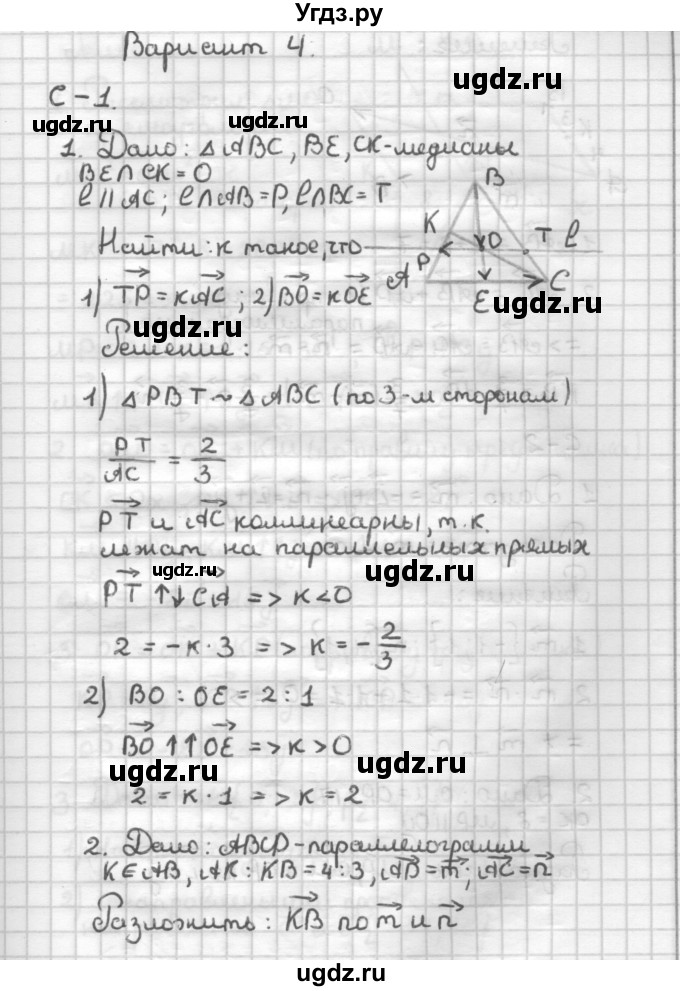 Угдз.ру
Вариант 4.
ugdz.ru
С-1.
ugdz.ru ugdz.ru
1. Дано: △ABC, BE, CK-медианы
BE∩CK=O
ℓ∥AC; ℓ∩AB=P, ℓ∩BC=T
B
K O T ℓ
P
A E C
Найти: к такое, что
1) TP→ = кAC→; 2) BO→ = кOE→
ugdz.ru ugdz.ru
Решение:
1) △PBT ~ △ABC (по 3-м сторонам)
PT/AC = 2/3
PT→ и AC→ коллинеарны, т.к.
лежат на параллельных прямых
ugdz.ru ugdz.ru
PT→ ↑↓ CA→ => к<0
2 = -к·3 => к = -2/3
2) BO : OE = 2 : 1
BO→ ↑↑ OE→ => к>0
ugdz.ru ugdz.ru
2 = к·1 => к = 2
2. Дано: ABCD-параллелограмм
K∈AB, AK : KB = 4 : 3, AD→ = m→; AC→ = n→
Разложить: KB→ по m→ и n→
ugdz.ru ugdz.ru
ugdz.ru